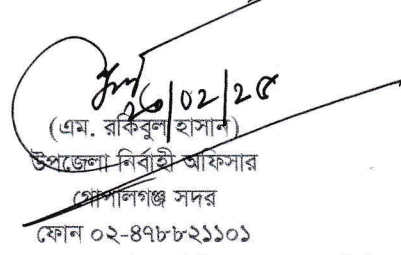 ২৬/০২/২৫
(এম. রকিবুল হাসান)
উপজেলা নির্বাহী অফিসার
গোপালগঞ্জ সদর
ফোন ০২-৪৭৮৮২১১০১